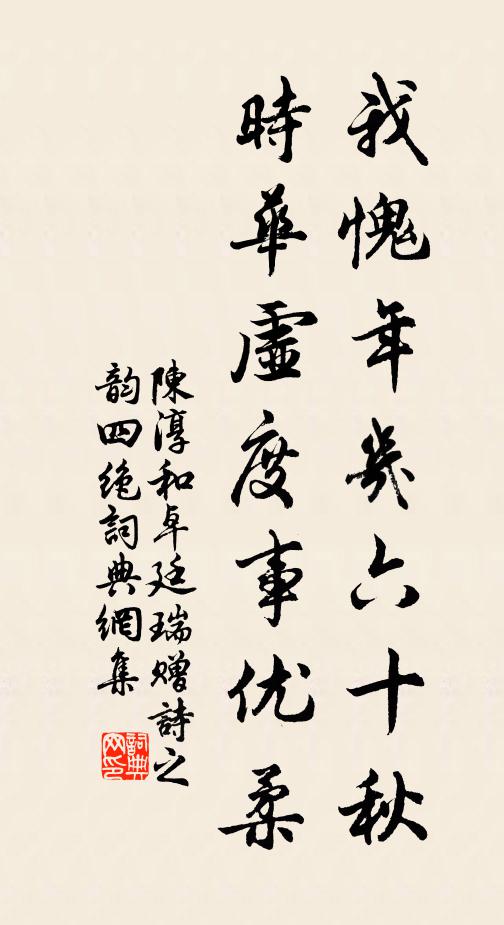 我愧年幾六十秋
時華虛度事优柔
陳淳和卓廷瑞贈詩之
韵四绝詞典網集
詞典网印